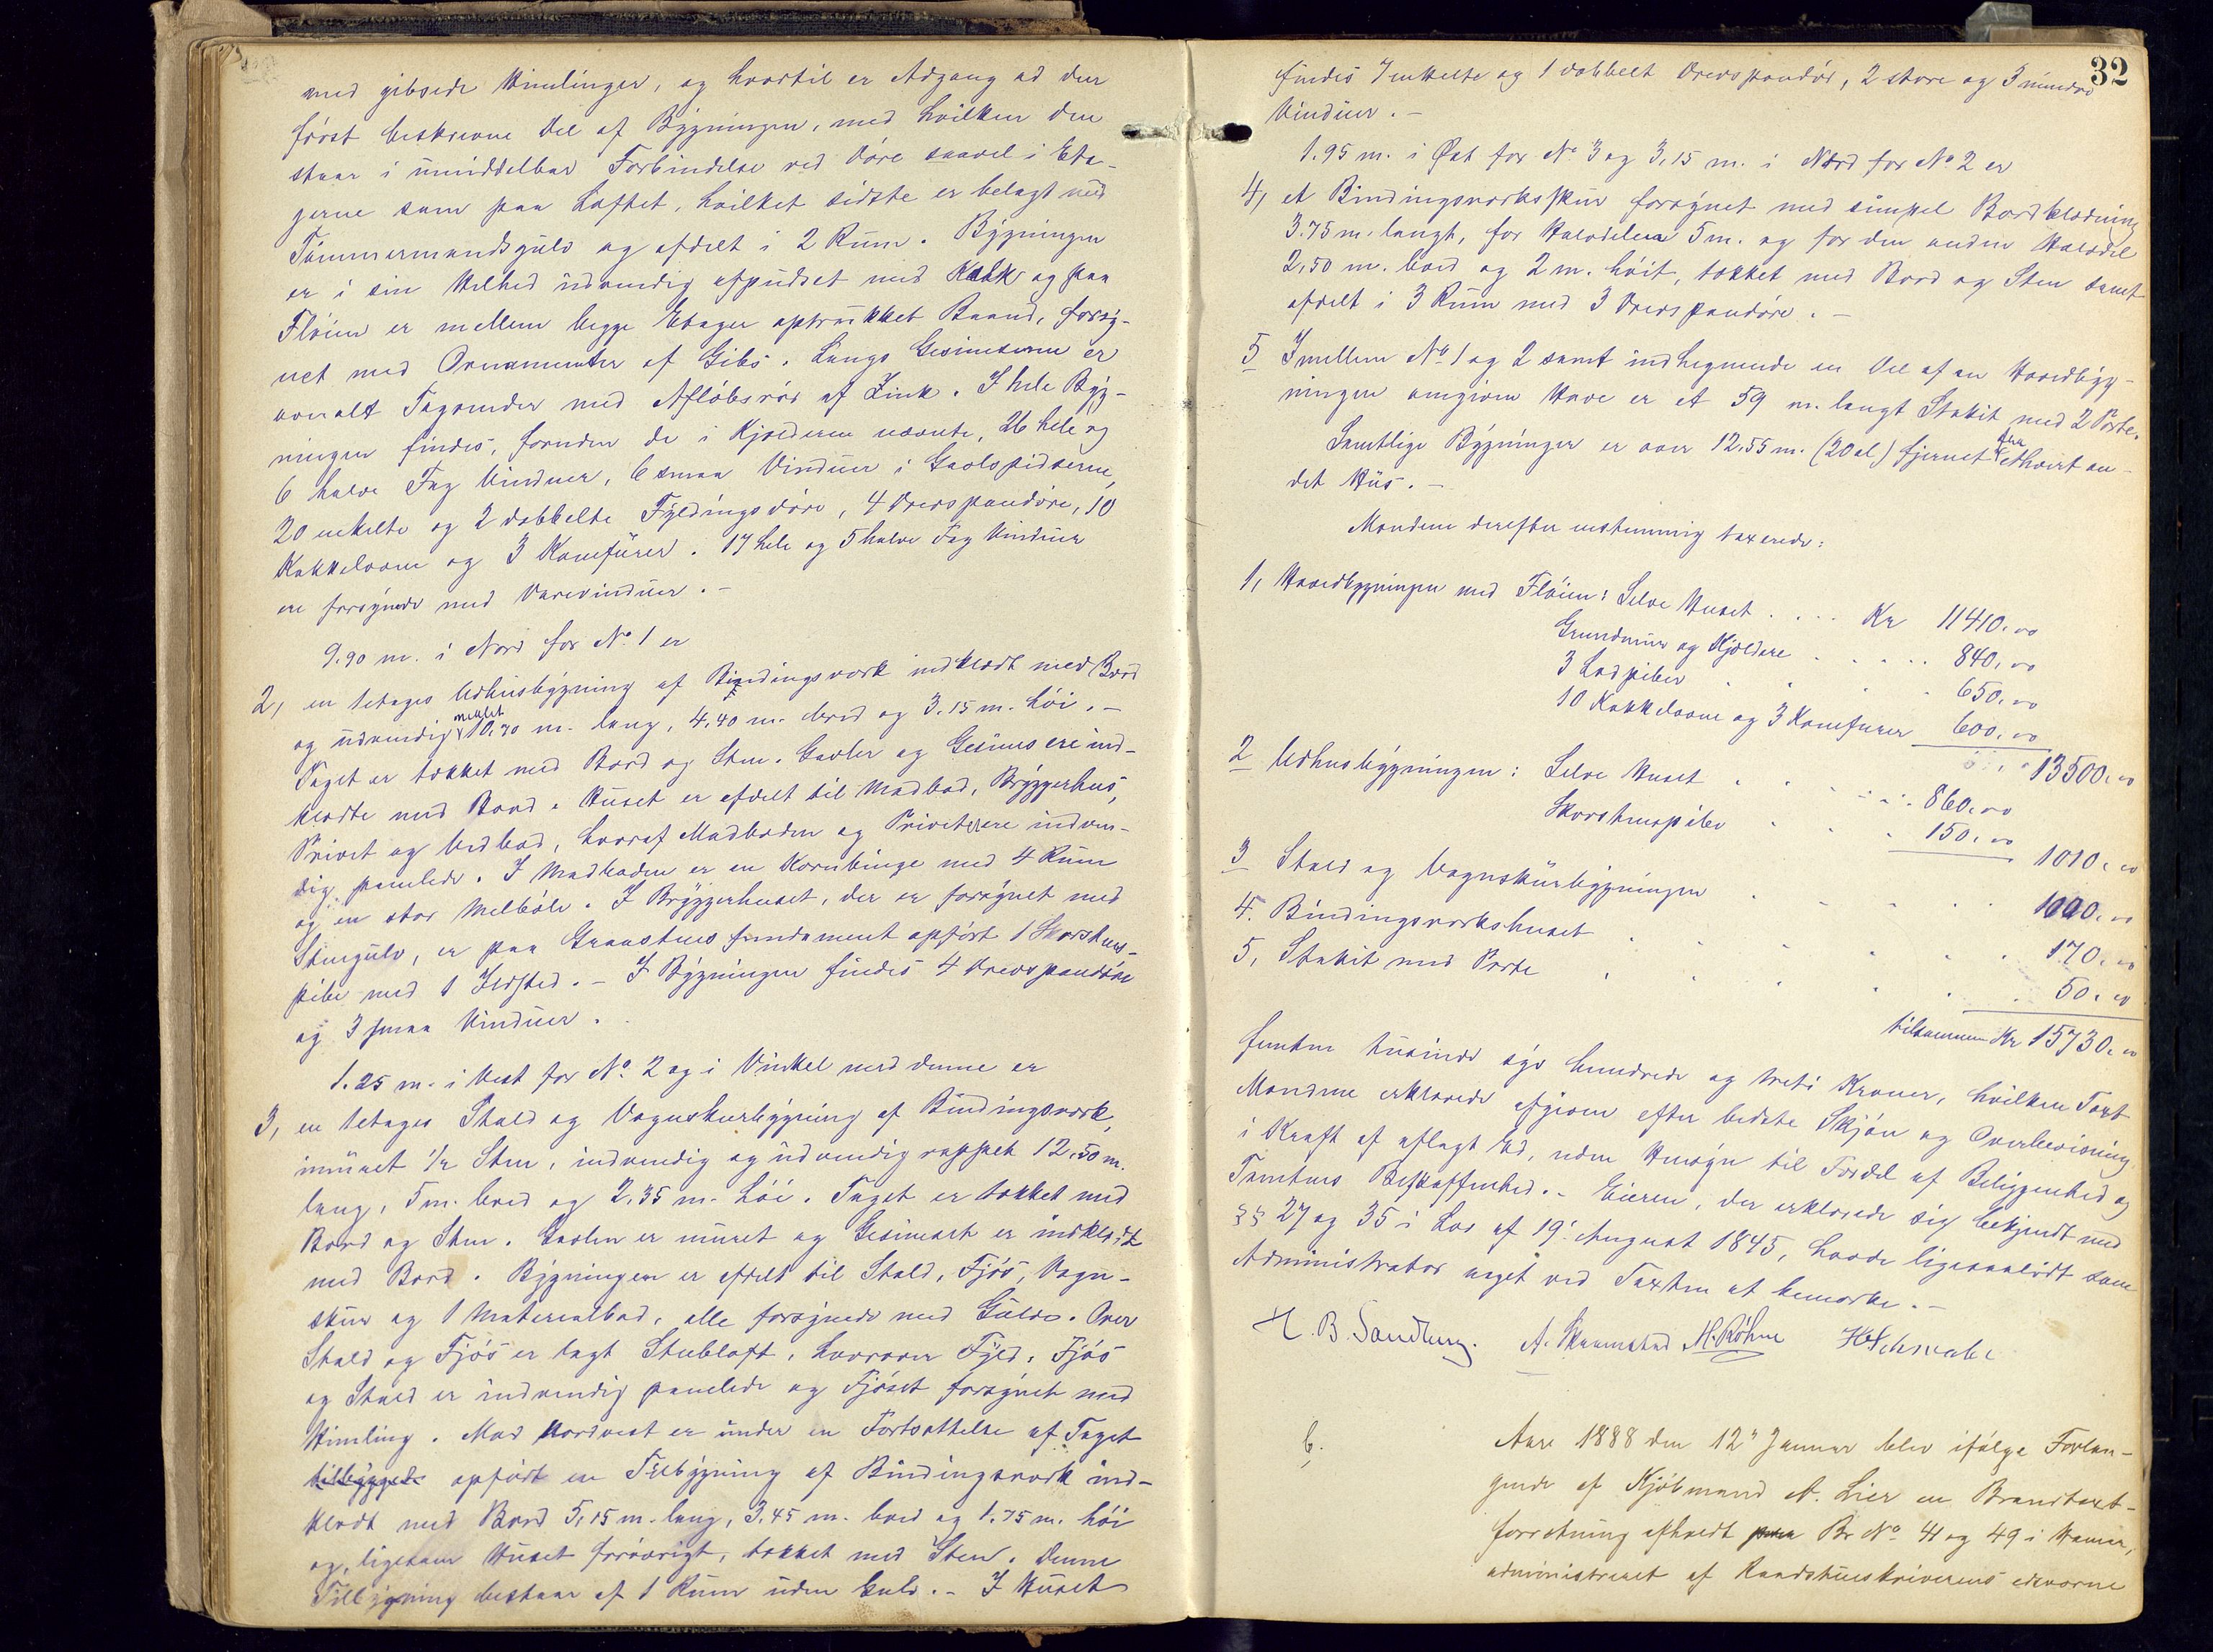 med gibsede Himlinger, og hvortil er Adgang ad den
først beskrevne Del af Bygningen, med hvilken den
staar i umiddelbar Forbindelse ved Døre saavel i Eta-
gerne som paa Loftet, hvilket sidste er belagt med
Tømmermandsgulv og afdelt i 2 Rum. Bygningen
er i sin Helhed udvendig afpudset med Kalk og paa
Fløien er mellem begge Etager optrukket Baand, forsy-
net med Ornamenter af Gibs. Langs Gesimserne er
overalt Tagrender med Afløbsrør af Zink. I hele Byg-
ningen findes, foruden de i Kjælderen nævnte, 26 hele og
6 halve Fag Vinduer, 6 smaa Vinduer i Gavlspidserne,
20 enkelte og 2 dobbelte Fyldingsdøre, 4 Drevspandøre, 10
Kakkelovne og 3 Komfurer. 17 hele og 5 halve Fag Vinduer
ere forsynede med Varevinduer.-
9.90 m. i Nord for No 1 er
2, en 1etages Udhusbygning af Bindingsværk indklædt med Bord
og udvendig malet 10.70 m. lang, 4.40 m. bred og 3.15 m. høi.-
Taget er tækket med Bord og Sten. Gavler og Gesimser ere ind-
klædte med Bord. Huset er afdelt til Madbod, Bryggerhus,
Privet og Vedbod, hvoraf Madboden og Privetet ere indven-
dig panelede. I Madboden er en Kornbinge med 4 Rum
og en stor Melbøle. I Bryggerhuset, der er forsynet med
Stengulv, er paa Graastens fundament opført 1 Skorstens-
pibe med 1 Ildsted.- I Bygningen findes 4 Drevspandøre
og 3 smaa Vinduer.
1.25 m. i Vest for No 2 og i Vinkel med denne er
3, en 1etages Stald og Vognskurbygning af Bindingsværk,
muret 1/2 Sten, indvendig og udvendig rappet 12.50 m.
lang, 5 m. bred og 2.35 m. høi. Taget er tækket med
Bord og Sten. Gavlen er muret og Gesimset er indklædt
med Bord. Bygningen er afdelt til Stald, Fjøs, Vogn-
skur og 1 Materialbod, alle forsynede med Gulve. Over
Stald og Fjøs er lagt Stubloft, hvorover Fyld. Fjøs
og Stald er indvendig panelede og Fjøset forsynet med
Himling. Mod Nordvest er under en Fortsættelse af Taget
tilbygget opført en Tilbygning af Bindingsværk ind-
klædt med Bord 5.15 m. lang, 3.45 m. bred og 1.75 m. høi
og, ligesom Huset forøvrigt, tækket med Sten. Denne
Tilbygning bestaar af 1 Rum uden Gulv.- I Huset
32
findes 7 enkelte og 1 dobbelt Drevspandør, 2 store og 3 mindre
Vinduer.-
1.95 m. i Øst for No 3 og 3.15 m. i Nord for No 2 er
4, et Bindingsværksskur forsynet med simpel Bordklædning
3.75 m. langt, for Halvdelen 5 m. og for den anden Halvdel
2,50 m. bred og 2 m. høit, tækket med Bord og Sten samt
afdelt i 3 Rum med 3 Drevspandøre.-
5 Imellem No 1 og 2 samt indhegnende en Del af en Hovedbyg-
ningen omgiven Have er et 59 m. langt Stakit med 2 Porte.
Samtlige Bygninger er over 12.55 m. (20 al) fjernet fra ethvert an-
det Hus.-
Mændene derefter enstemmig taxerede:
1, Hovedbygningen med Fløien: Selve Huset .... Kr 11410.00
Grundmur og Kjældere ..... 840.00
3 Ladpiber . . . . 650.00
10 Kakkelovne og 3 Komfurer 600.00
13500.00
2 Udhusbygningen: Selve Huset . . . . . 860.00
Skorstenspibe . . . 150.00
1010.00
3 Stald og Vognskurbygningen . . . . 1000.00
4. Bindingsværkshuset . . . . . 170.00
5, Stakit med Porte . . . . . . 50.00
tilsammen Kr 15730.00
femten tusinde syv hundrede og treti Kroner, hvilken Taxt
Mændene erklærede afgiven efter bedste Skjøn og Overbevisning
i Kraft af aflagt Ed, uden Hensyn til Fordel af Beliggenhed og
Tomtens Beskaffenhed.- Eieren, der erklærede sig bekjendt med
§§ 27 og 35 i Lov af 19. August 1845, havde ligesaalidt som
Administrator noget ved Taxten at bemærke.-
H. B. Sandberg. M. Röhne H Schwabe
6.
Aar 1888 den 12" Januar blev ifølge Forlan-
gende af Kjøbmand A. Lier en Brandtaxt-
forretning afholdt paa Br No 41 og 49 i Hamar,
administreret af Raadstueskriverens edsvorne